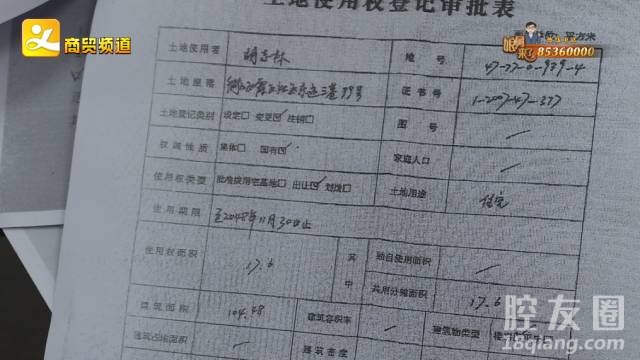 土地使用权登记审批表
商贸频道
来了 85360000
方米
土地使用者 胡志林 地号 47-27-0-939-4
土地座落 39号 证书号 1-2007-47-377
土地登记类别 设定□ 变更☑ 注销□ 图号 /
权属性质 集体□ 国有☑ 家庭人口 /
使用权类型 批准拨用宅基地□ 出让☑ 划拨□ 土地用途 住宅
使用期限 至2048年11月30日止
使用权面积 17.6 其中 独自使用面积 /
共用分摊面积 17.6
建筑面积 104.48 建筑容积率 / 建筑物类型
建筑占地面积 / 建筑密度
腔友圈
18qiang.com